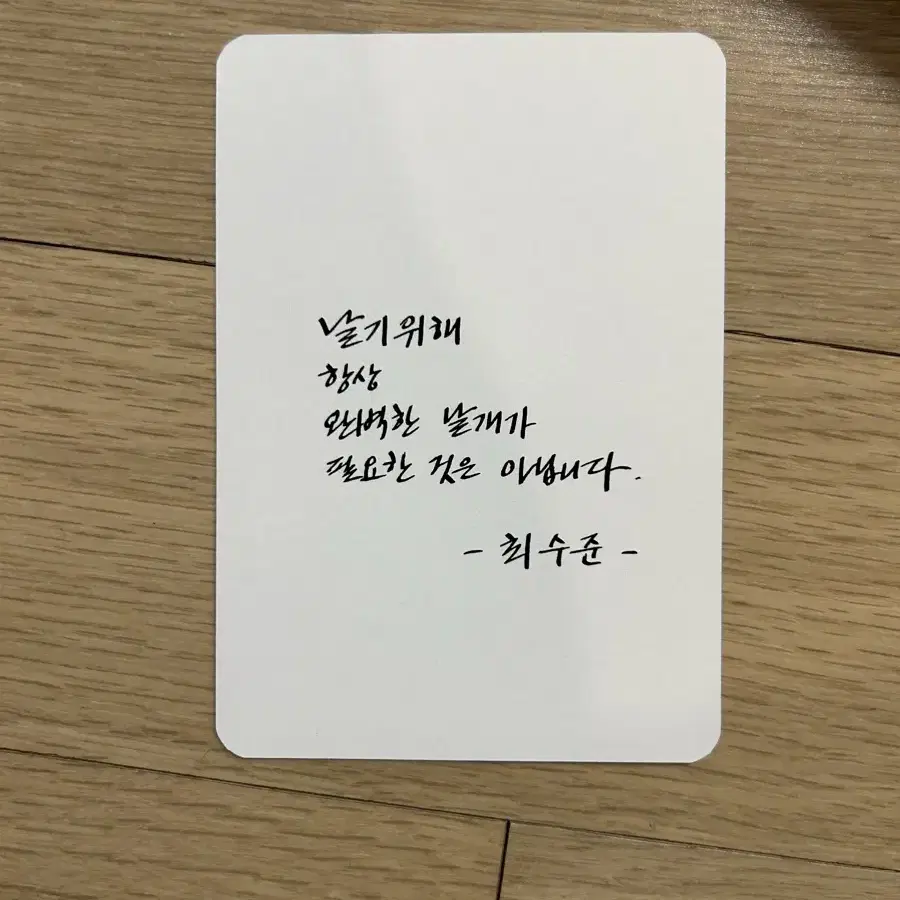 날기위해
항상
완벽한 날개가
필요한 것은 아닙니다.
- 최수준 -